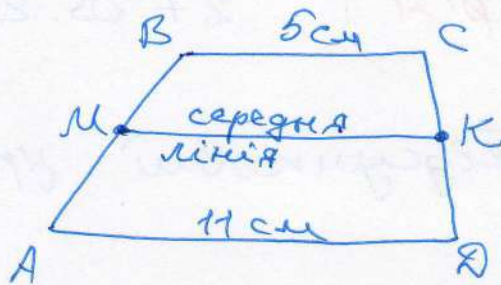 B 5см C
M середня K
лінія
11 см
A D